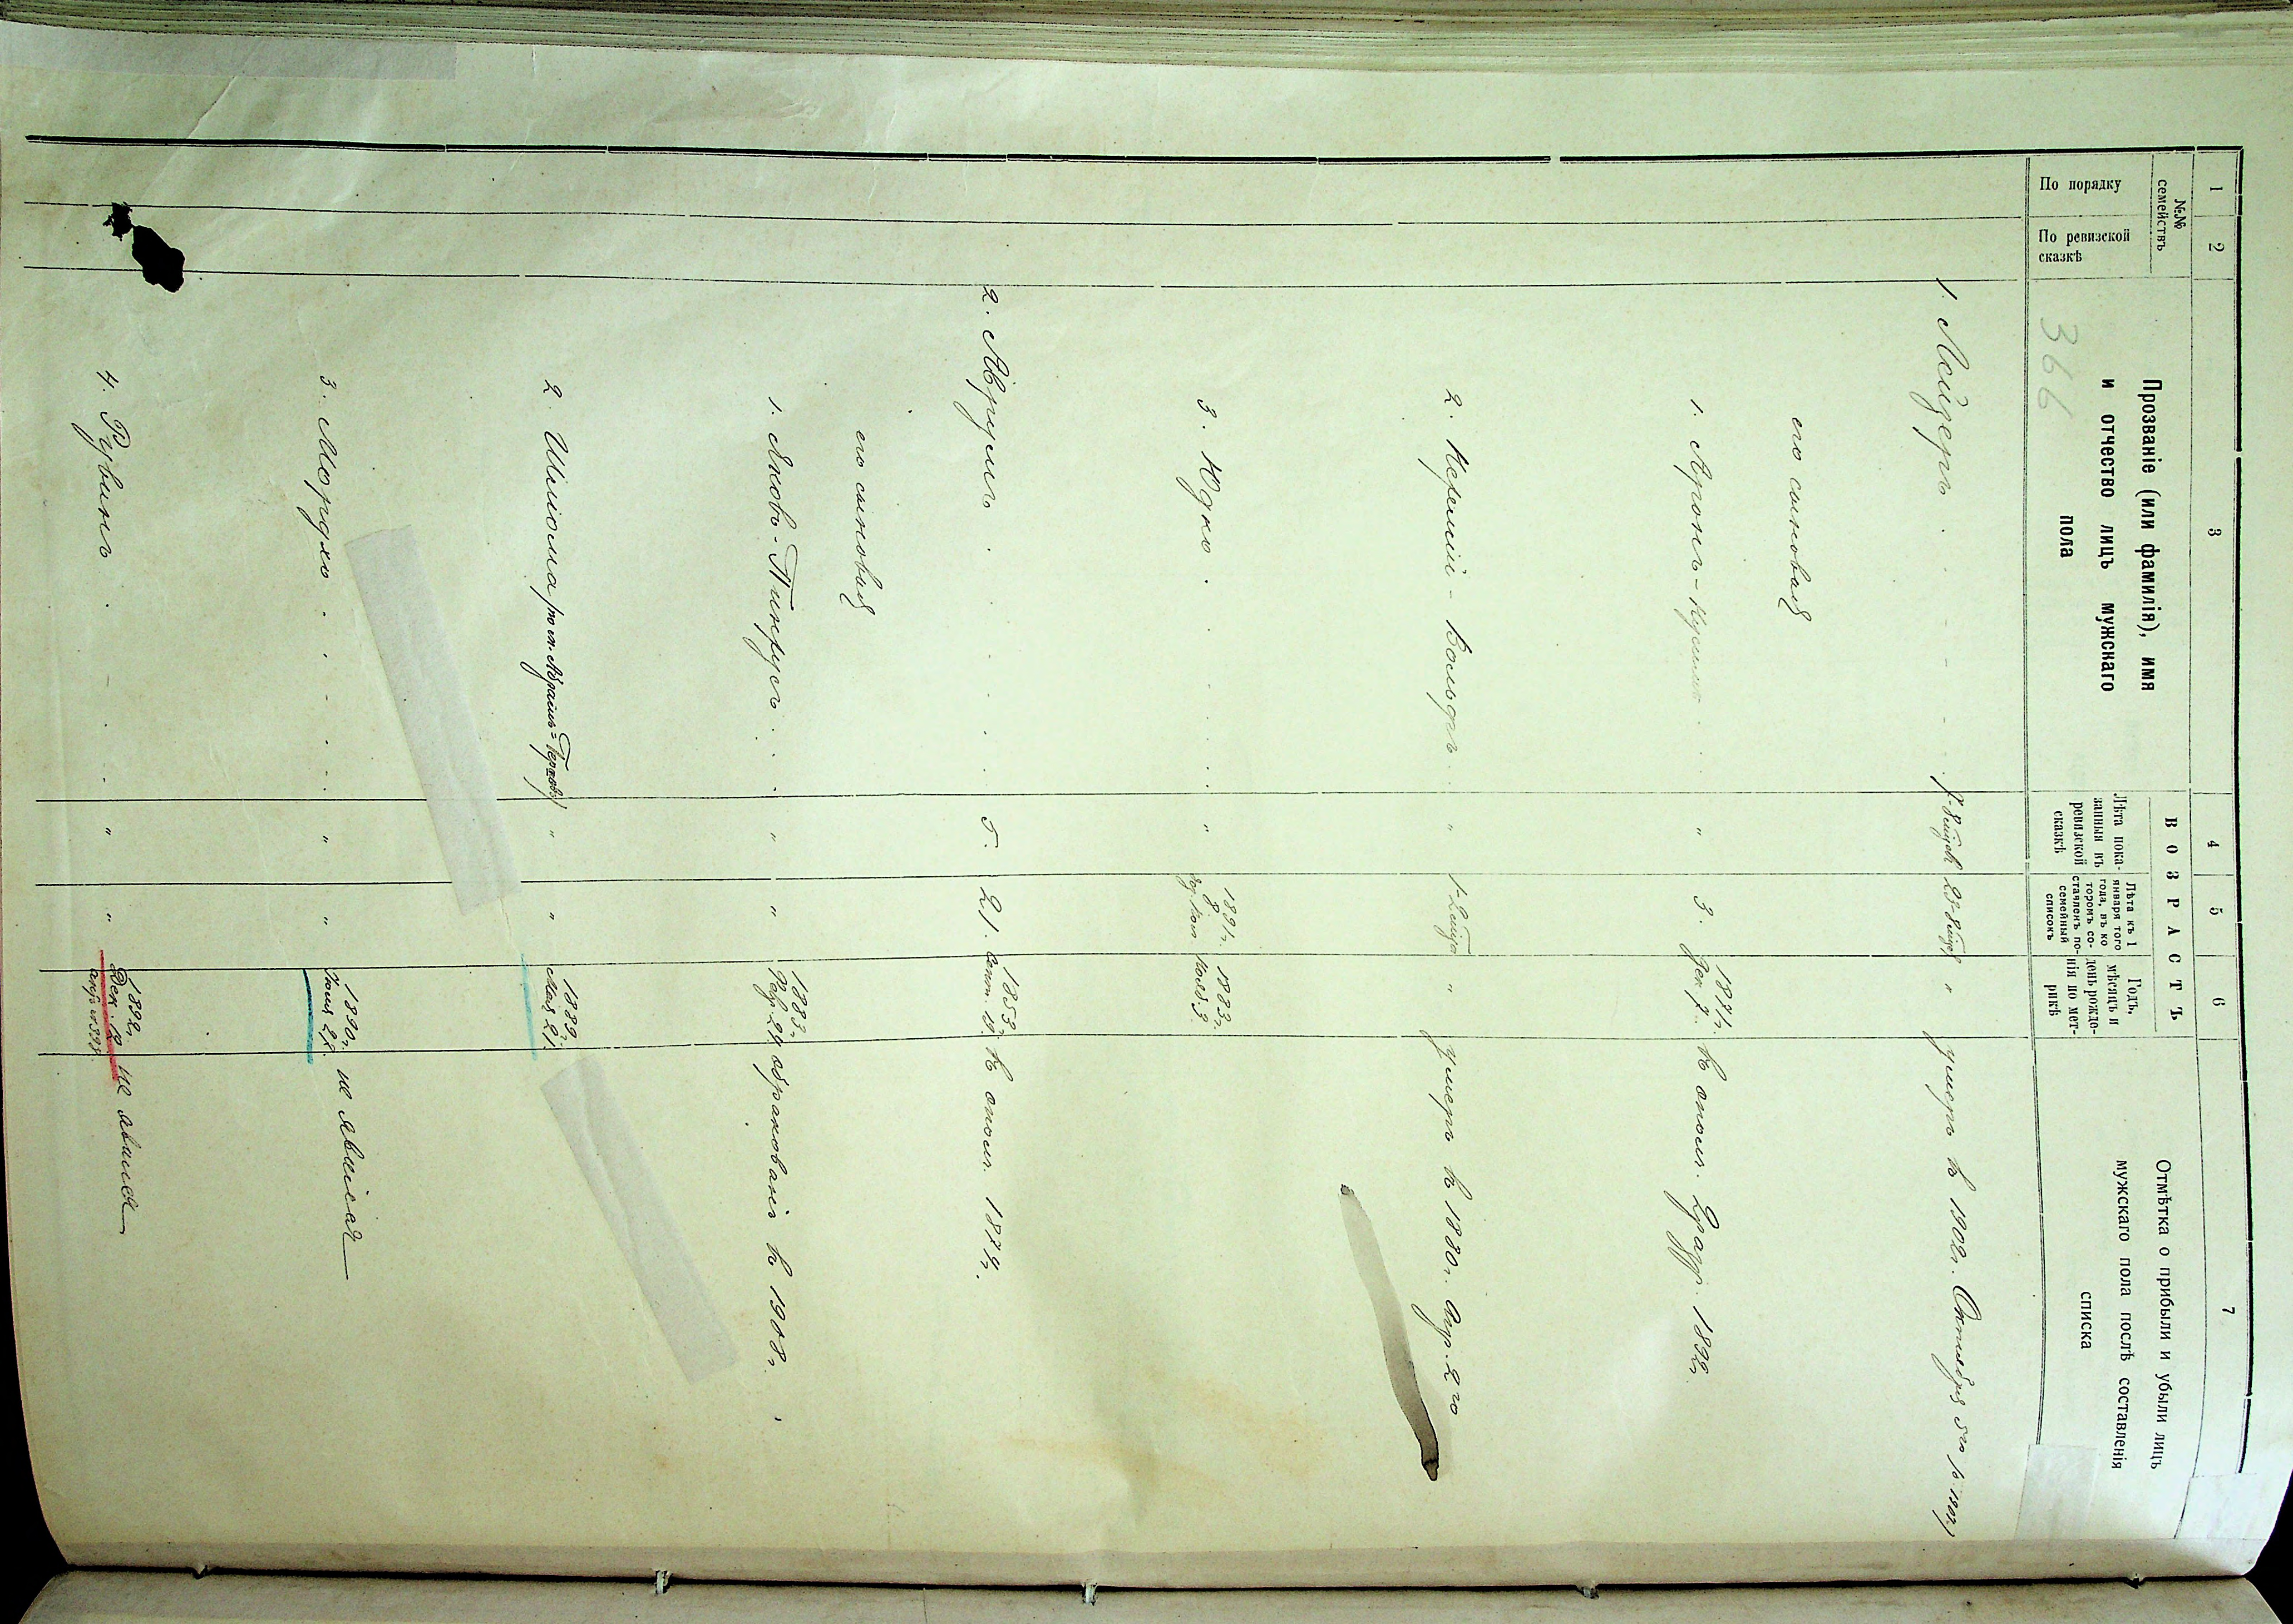 1 2 3 4 5 6 7
№№ семействъ
По порядку
По ревизской сказкѣ
Прозваніе (или фамилія), имя
и отчество лицъ мужскаго
пола
ВОЗРАСТЪ
Лѣта пока-
занныя въ
ревизской
сказкѣ
Лѣта къ 1
января того
года, въ ко
торомъ со-
ставленъ по-
семейный
списокъ
Годъ,
мѣсяцъ и
день рожде-
нія по мет-
рикѣ
Отмѣтка о прибыли и убыли лицъ
мужскаго пола послѣ составленія
списка
366
1. Лейзеръ . " умеръ въ 1902г. Октября 5го
его сыновья
1. Аронъ- " 3. 1871г. Дек. 7. въ 1892г.
2. Іеремій-Вольфъ " " умеръ въ 1880г. 2го
3. Юдко . " 1891г. 1883г. Нояб. 3.
2. Аврумъ . 5. 21. 1853г. Сент. 19. въ опол. 1874г.
его сыновья
1. Яновъ-Пинхусъ . " " 1883г. Февр. 24. обракованъ въ 1908г.
2. Шліома " " 1889г. Мая 21.
3. Мордхо . " " 1890г. Іюня не явился
4. Рувинъ . " " 1892г. Дек. 12. не явился